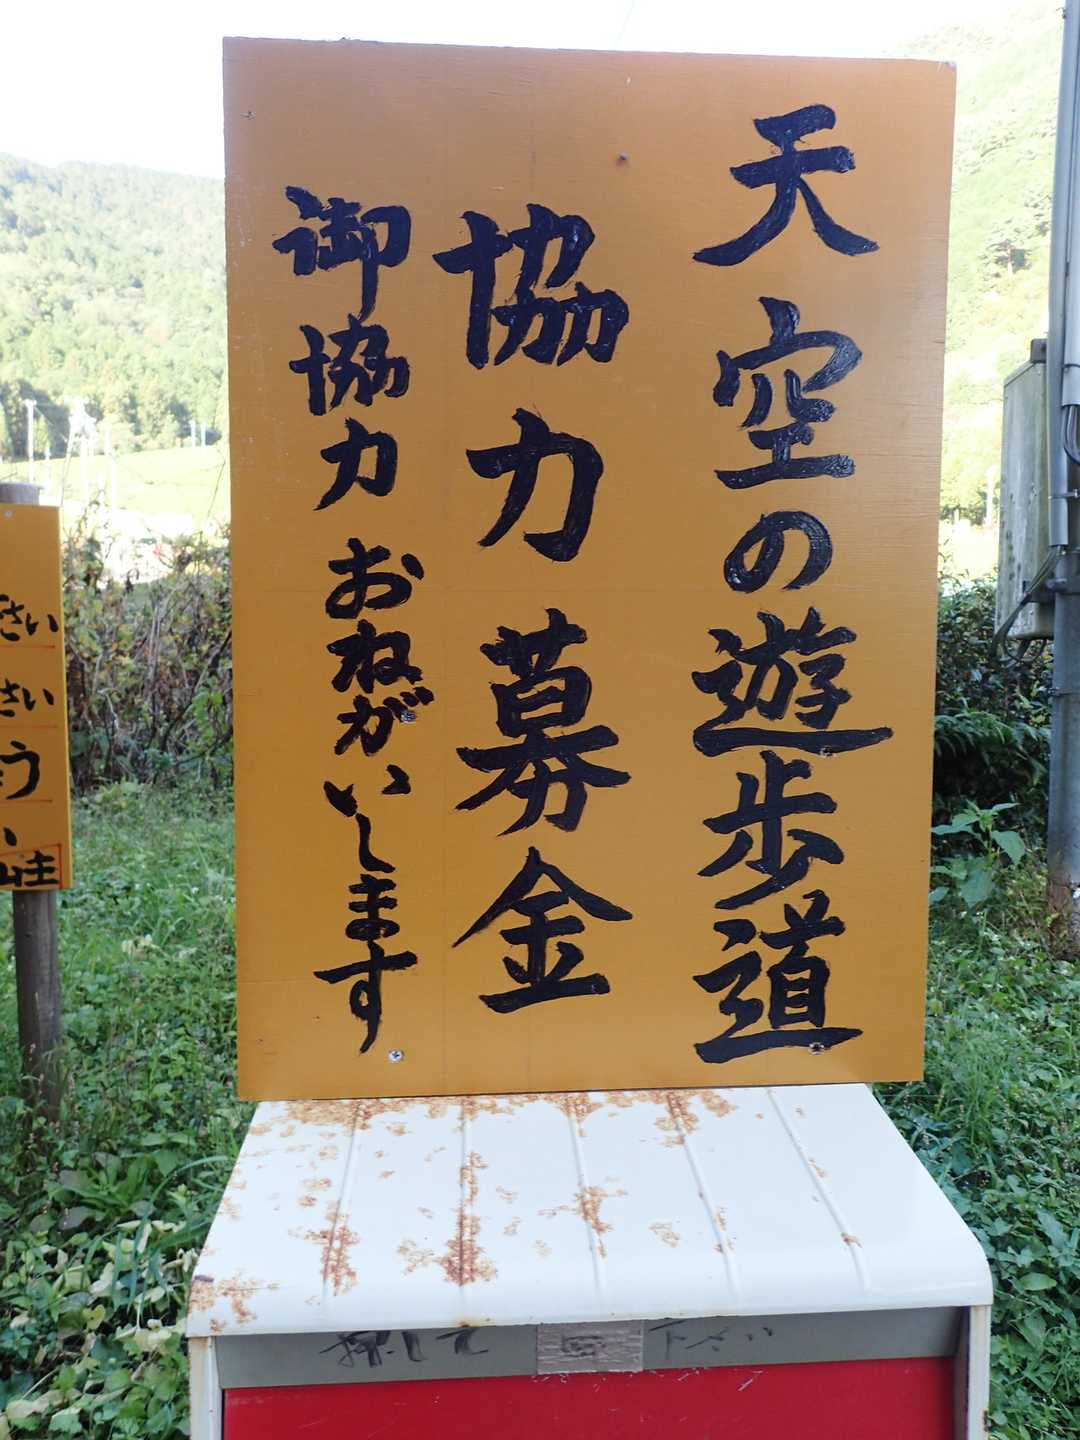 天空の遊歩道
協力募金
御協力おねがいします
さい
さい
う
い
下さい